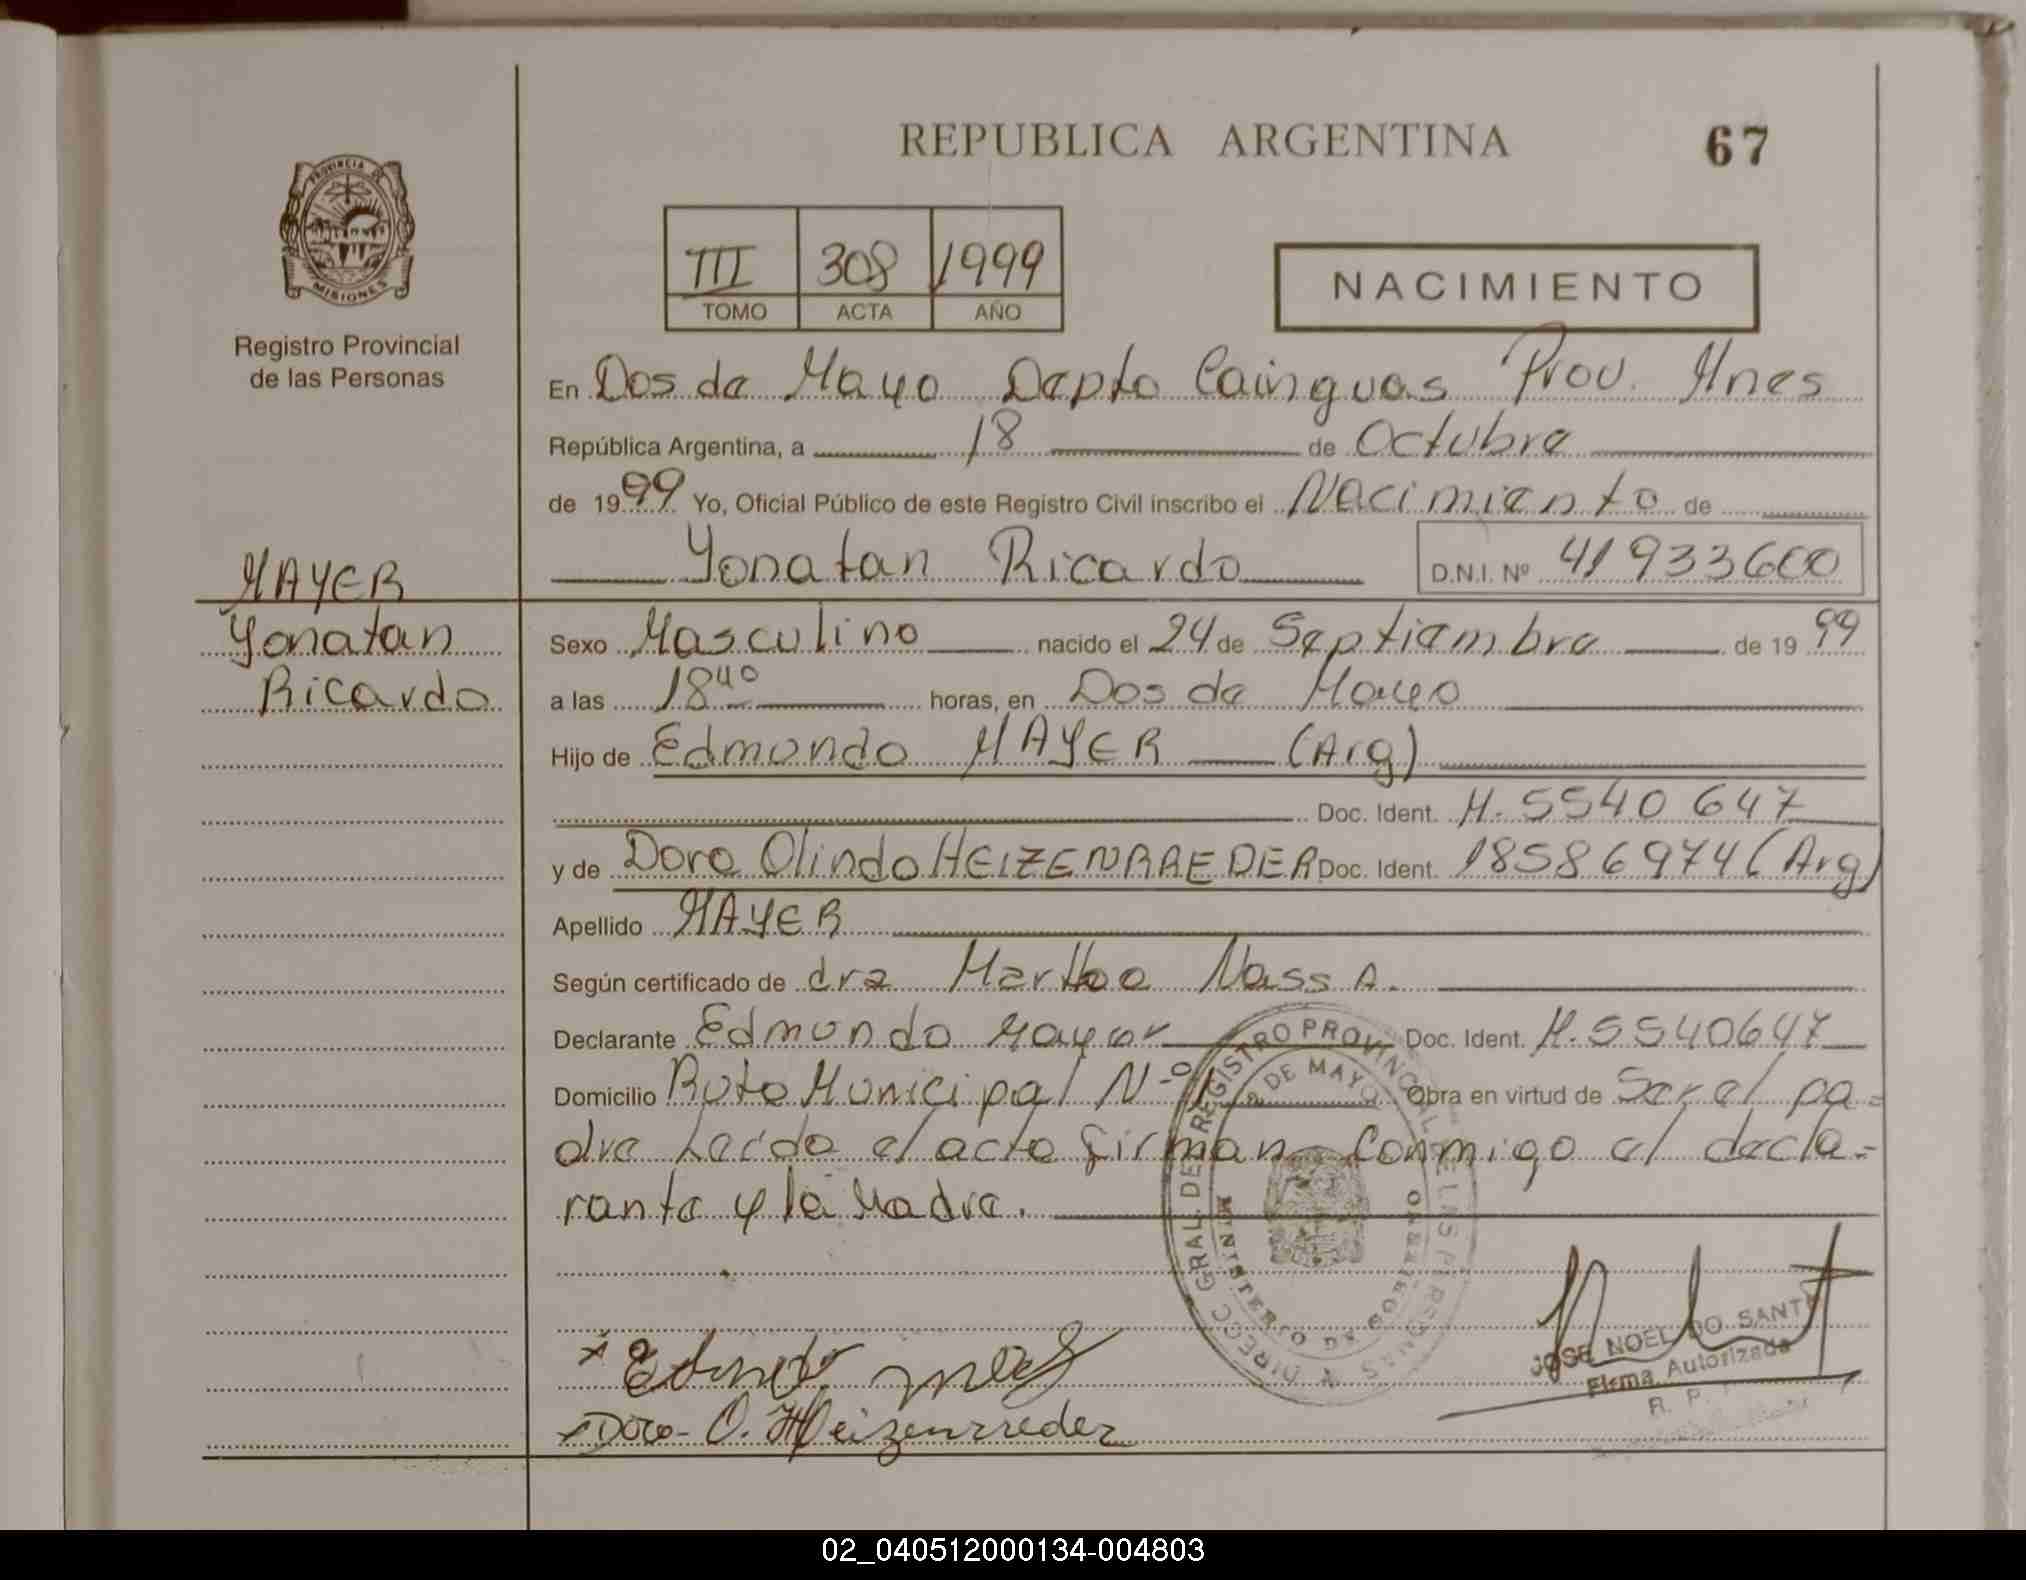 REPUBLICA ARGENTINA
67
PROVINCIA DE
MISIONES
Registro Provincial
de las Personas
III 308 1999
TOMO ACTA AÑO
NACIMIENTO
En Dos de Mayo Depto Cainguas Prov. Mnes
República Argentina, a 18 de Octubre
de 1999 Yo, Oficial Público de este Registro Civil inscribo el Nacimiento de
Yonatan Ricardo D.N.I. Nº 41933600
MAYER
Yonatan
Ricardo
Sexo Masculino nacido el 24 de Septiembre de 1999
a las 18 40 horas, en Dos de Mayo
Hijo de Edmundo MAYER (Arg)
Doc. Ident. M. 5540 647
y de Dora Olinda HEIZENRREDER Doc. Ident. 18586974 (Arg)
Apellido MAYER
Según certificado de dra Martha Nass A.
Declarante Edmundo Mayer Doc. Ident. M. 5540647
Domicilio Ruta Municipal Nº 1 Obra en virtud de Ser el pa=
dre Leída el acta firman conmigo el decla=
rante y la Madre.
DIRECC GRAL. DEL REGISTRO PROVINCIAL DE LAS PERSONAS
2 DE MAYO
MINISTERIO DE GOBIERNO
x Edmundo
x Dora O. Heizenrreder
JOSE NOEL DO SANTO
Firma Autorizada
R. P.
02_040512000134-004803